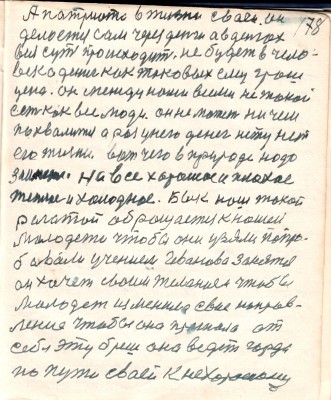 78
А патриота в жизни своей. он
дело суть сам через деньги а в деньгах
вся суть происходит. не будет в чело-
века денег как таковых ему грош
цена. он между нами всеми не такой
есть как все люди. он не может ни чем
похвалится а раз у него денег нету нет
его жизни. вот чего в природе надо
на все хорошое и плохое
теплое и холодное. Бык наш такой
рогатой обращается к нашей
молодежи чтобы они узяли попро-
бовали учением Иванова занятся
он хочет своим желанием чтобы
молодеж изменила свае направ-
ление чтобы она от
себя эту она ведет города
по пути своей к нехорошому